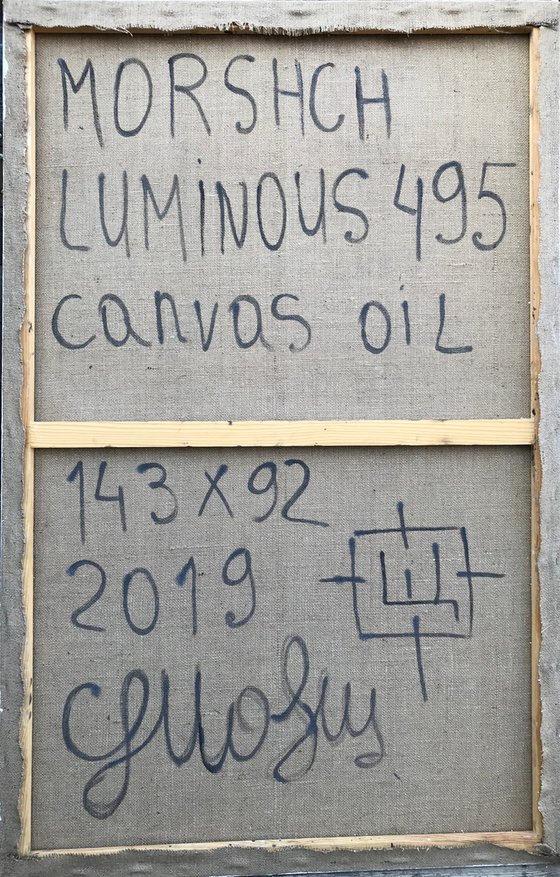 MORSHCH
LUMiNOUS 495
canvas oiL
143 x 92
2019
Щ